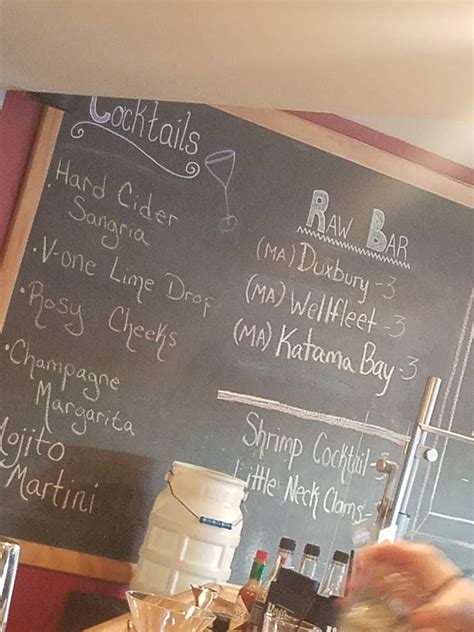 Cocktails
· Hard Cider
Sangria
· V-one Lime Drop
· Rosy Cheeks
· Champagne
Margarita
Mojito
Martini
Raw Bar
(MA) Duxbury -3
(MA) Wellfleet -3
(MA) Katama Bay -3
Shrimp Cocktail -3
Little Neck Clams -